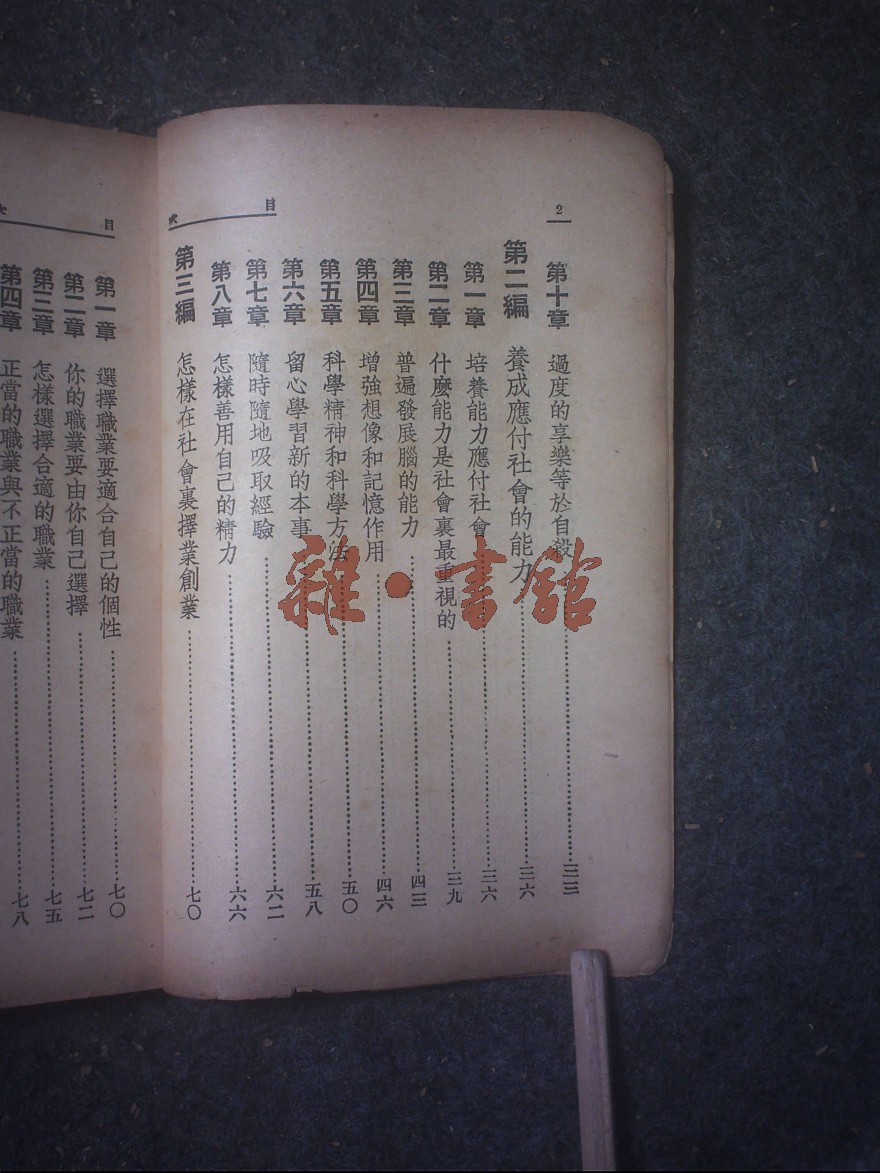 2
目次
第十章 過度的享樂等於自殺 三三
第二編 養成應付社會的能力 三六
第一章 培養能力應付社會 三六
第二章 什麼能力是社會裏最重視的 三九
第三章 普遍發展腦的能力 四三
第四章 增強想像和記憶作用 四六
第五章 科學精神和科學方法 五〇
第六章 留心學習新的本事 五八
第七章 隨時隨地吸取經驗 六二
第八章 怎樣善用自己的精力 六六
第三編 怎樣在社會裏擇業創業 七〇
目次
第一章 選擇職業要適合自己的個性 七〇
第二章 你的職業要由你自己選擇 七二
第三章 怎樣選擇合適的職業 七五
第四章 正當的職業與不正當的職業 七八
雜·書館